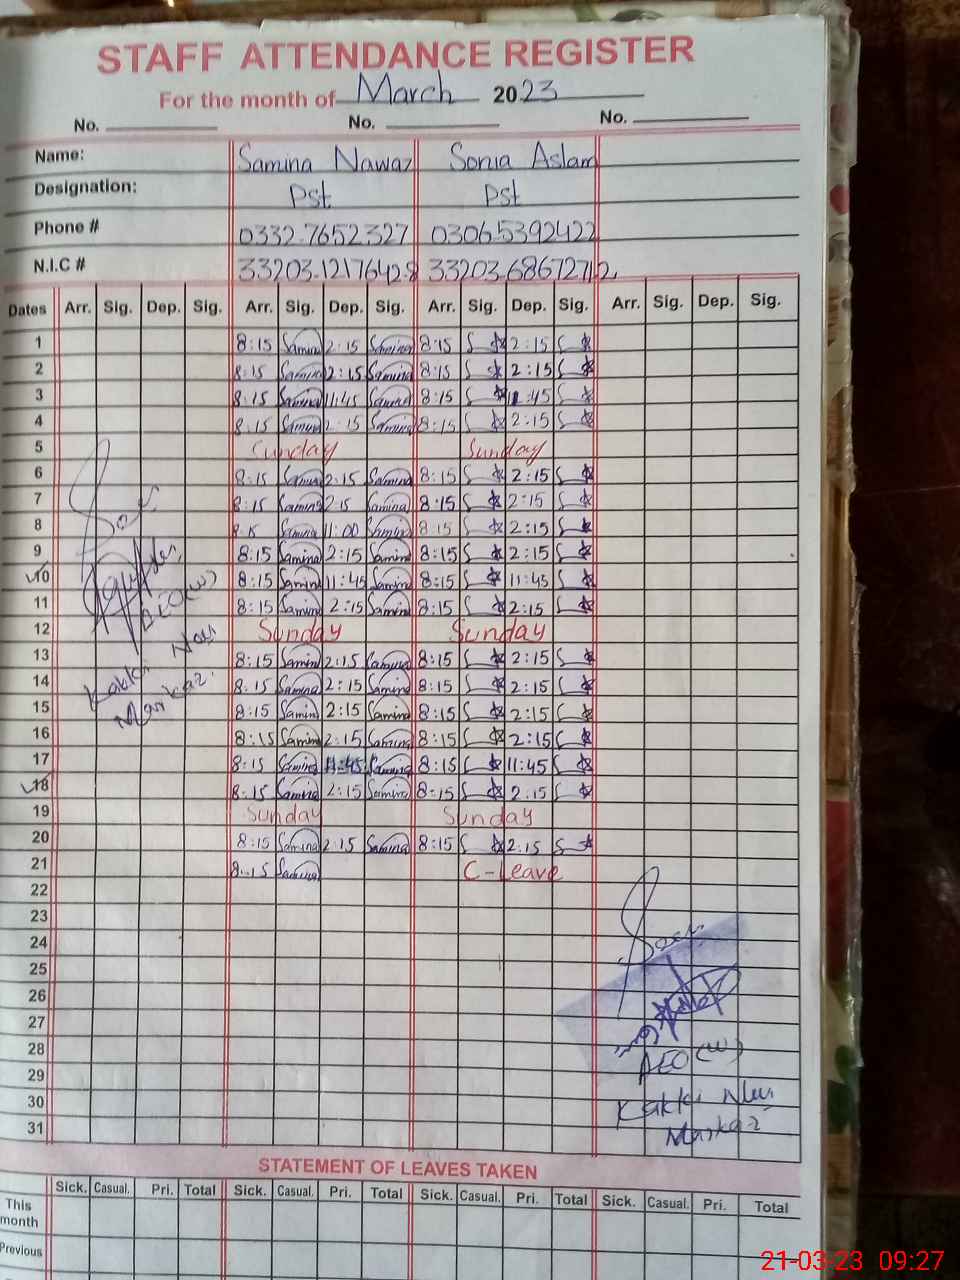 STAFF ATTENDANCE REGISTER
For the month of March 2023
No. No. No.
Name: Samina Nawaz Sonia Aslam
Designation: Pst Pst
Phone # 0332-7652327 0306-5392422
N.I.C # 33203-1217642-8 33203-6867271-2
Dates Arr. Sig. Dep. Sig. Arr. Sig. Dep. Sig. Arr. Sig. Dep. Sig. Arr. Sig. Dep. Sig.
1 8:15 Samina 2:15 Samina 8:15 2:15
2 8:15 Samina 2:15 Samina 8:15 2:15
3 8:15 Samina 11:45 Samina 8:15 11:45
4 8:15 Samina 2:15 Samina 8:15 2:15
5 Sunday Sunday
6 8:15 Samina 2:15 Samina 8:15 2:15
7 8:15 Samina 2:15 Samina 8:15 2:15
8 8:15 Samina 11:00 Samina 8:15 2:15
9 8:15 Samina 2:15 Samina 8:15 2:15
10 8:15 Samina 11:45 Samina 8:15 11:45
11 8:15 Samina 2:15 Samina 8:15 2:15
12 Sunday Sunday
13 8:15 Samina 2:15 Samina 8:15 2:15
14 8:15 Samina 2:15 Samina 8:15 2:15
15 8:15 Samina 2:15 Samina 8:15 2:15
16 8:15 Samina 2:15 Samina 8:15 2:15
17 8:15 Samina 11:45 Samina 8:15 11:45
18 8:15 Samina 2:15 Samina 8:15 2:15
19 Sunday Sunday
20 8:15 Samina 2:15 Samina 8:15 2:15
21 8:15 Samina C-Leave
22
23
24
25
26
27
28
29
30
31
AEO(W)
Kakki Nau
Markaz
AEO(W)
Kakki Nau
Markaz
STATEMENT OF LEAVES TAKEN
Sick. Casual. Pri. Total Sick. Casual. Pri. Total Sick. Casual. Pri. Total Sick. Casual. Pri. Total
This month
Previous
21-03-23 09:27